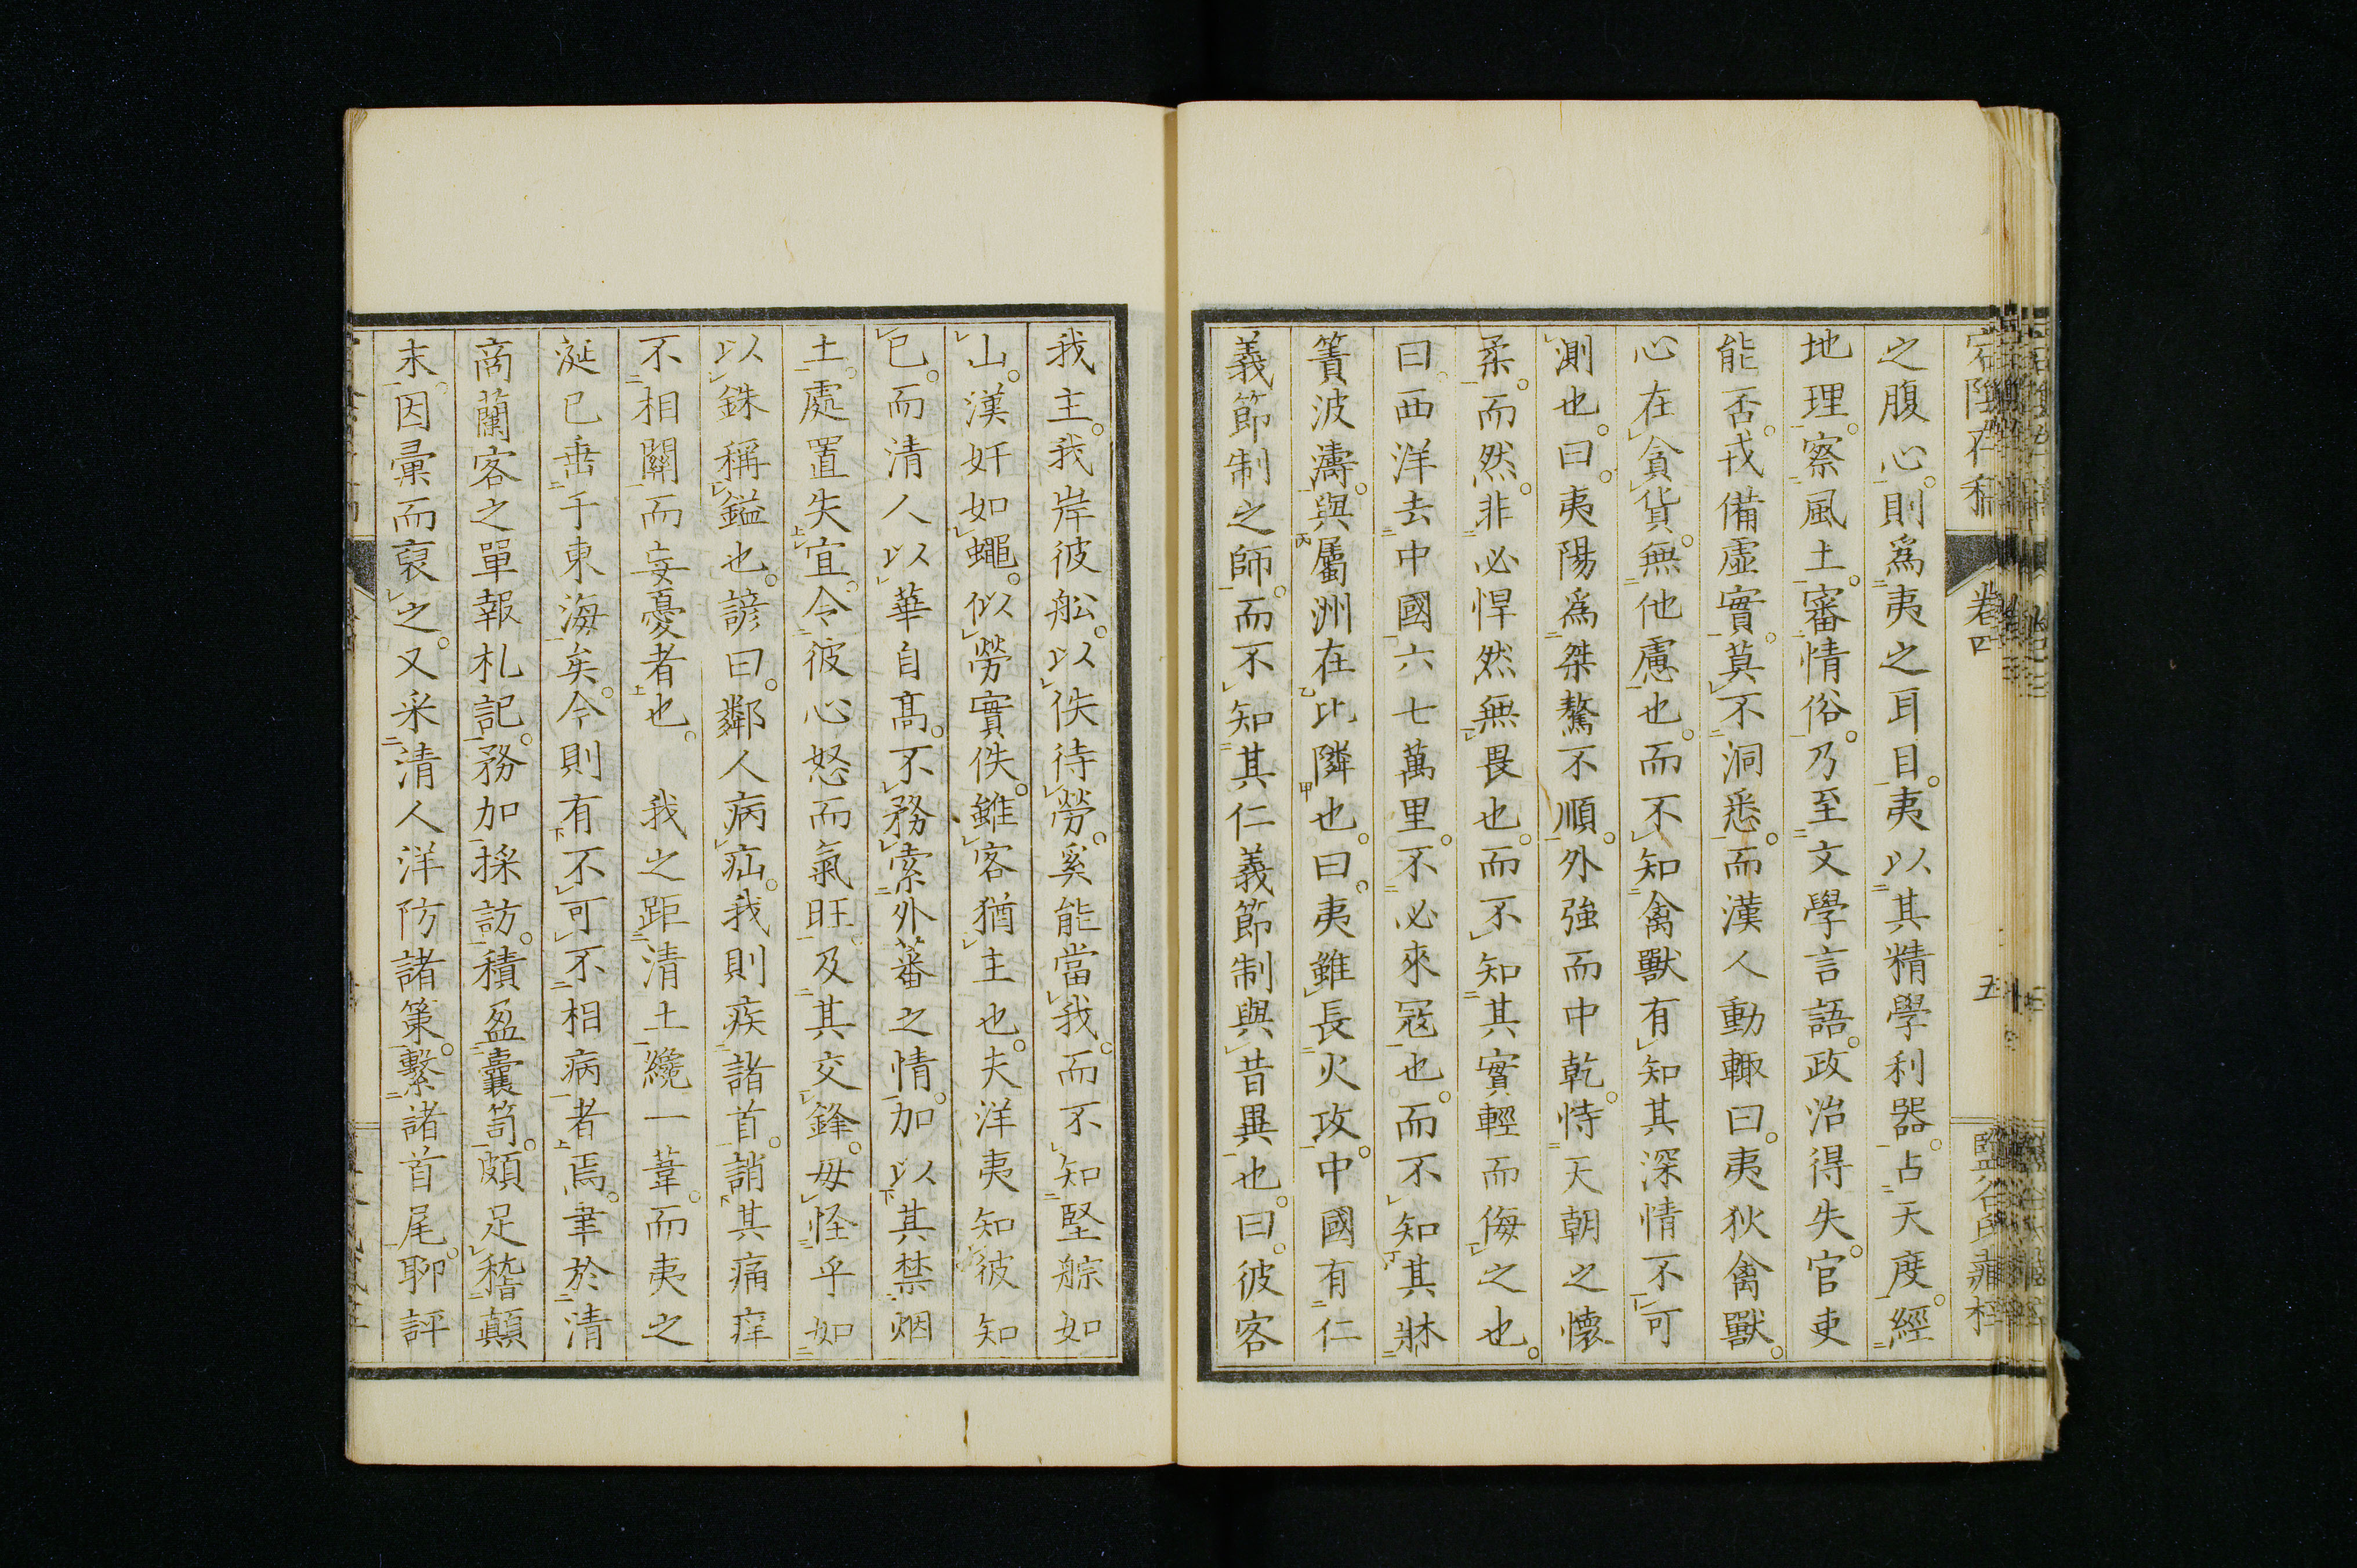 宕陰存稿 卷四 五
之腹心。則爲夷之耳目。夷以其精學利器。占天度。經
地理。察風土。審情俗。乃至文學言語。政治得失。官吏
能否。戎備虛實。莫不洞悉。而漢人動輙曰。夷狄禽獸。
心在貪貨。無他慮也。而不知禽獸有知其深情不可
測也。曰。夷陽爲桀驁不順。外強而中乾。恃天朝之懷
柔。而然。非必悍然無畏也。而不知其實輕而侮之也。
曰。西洋去中國六七萬里。不必來寇也。而不知其牀
簀波濤。與屬洲在比隣也。曰。夷雖長火攻。中國有仁
義節制之師。而不知其仁義節制與昔異也。曰。彼客
我主。我岸彼舩。以佚待勞。奚能當我。而不知堅䑸如
山。漢奸如蠅。似勞實佚。雖客猶主也。夫洋夷知彼知
已。而清人以華自高。不務索外蕃之情。加以其禁烟
土。處置失宜。令彼心怒而氣旺。及其交鋒。毋怪乎如
以銖稱鎰也。諺曰。鄰人病疝。我則疾諸首。誚其痛痒
不相關而妄憂者也。 我之距清土。纔一葦。而夷之
涎已垂于東海矣。今則有不可不相病者焉。聿於清
商蘭客之單報札記。務加採訪。積盈囊笥。頗足稽顛
末。因彙而裒之。又采清人洋防諸策。繫諸首尾。聊評